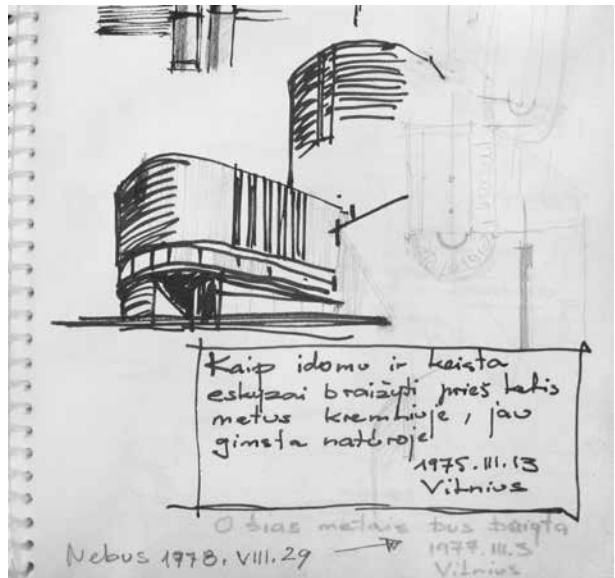 Kaip idomu ir keista
eskyzai braižyti prieš ketis
metus kremliuje, jau
gimsta natūroje
1975.III.13
Vilnius
O šias metais bus baigta
1977.III.3
Vilnius
Nebus 1978.VIII.29